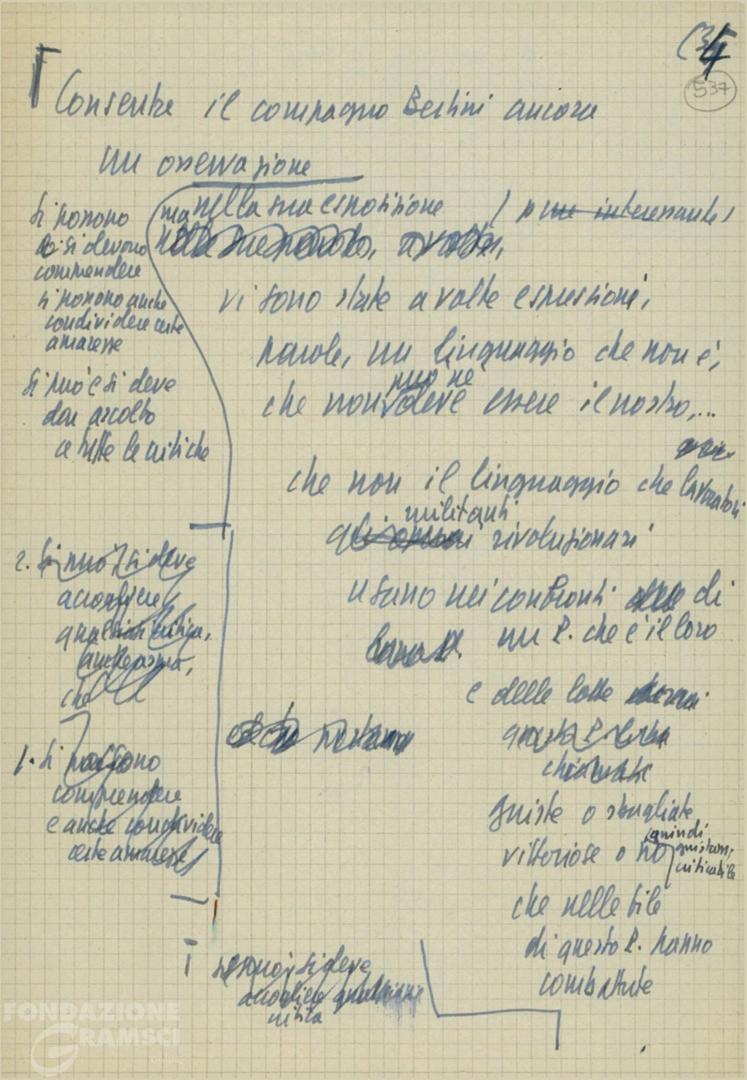 4
537
Consenta il compagno Bertini ancora
un osservazione
Si possono
e si devono
comprendere
si possono anche
condividere certe
amarezze
Si può e si deve
dar ascolto
a tutte le critiche
ma nella sua esposizione
interessante
a volte,
vi sono state a volte espressioni,
parole, un linguaggio che non è,
che non può né deve essere il nostro,...
che non il linguaggio che lavoratori
militanti
rivoluzionari
usano nei confronti di
un P. che è il loro
e delle lotte
questo P.
giuste o sbagliate
vittoriose o no
quindi
criticabile
che nelle file
di questo P. hanno
combattute
2. Si può e si deve
accogliere
qualsiasi critica,
anche aspra,
che
1. Si possono
comprendere
e anche condividere
certe amarezze
si può e si deve
accogliere qualsiasi
critica
FONDAZIONE
GRAMSCI